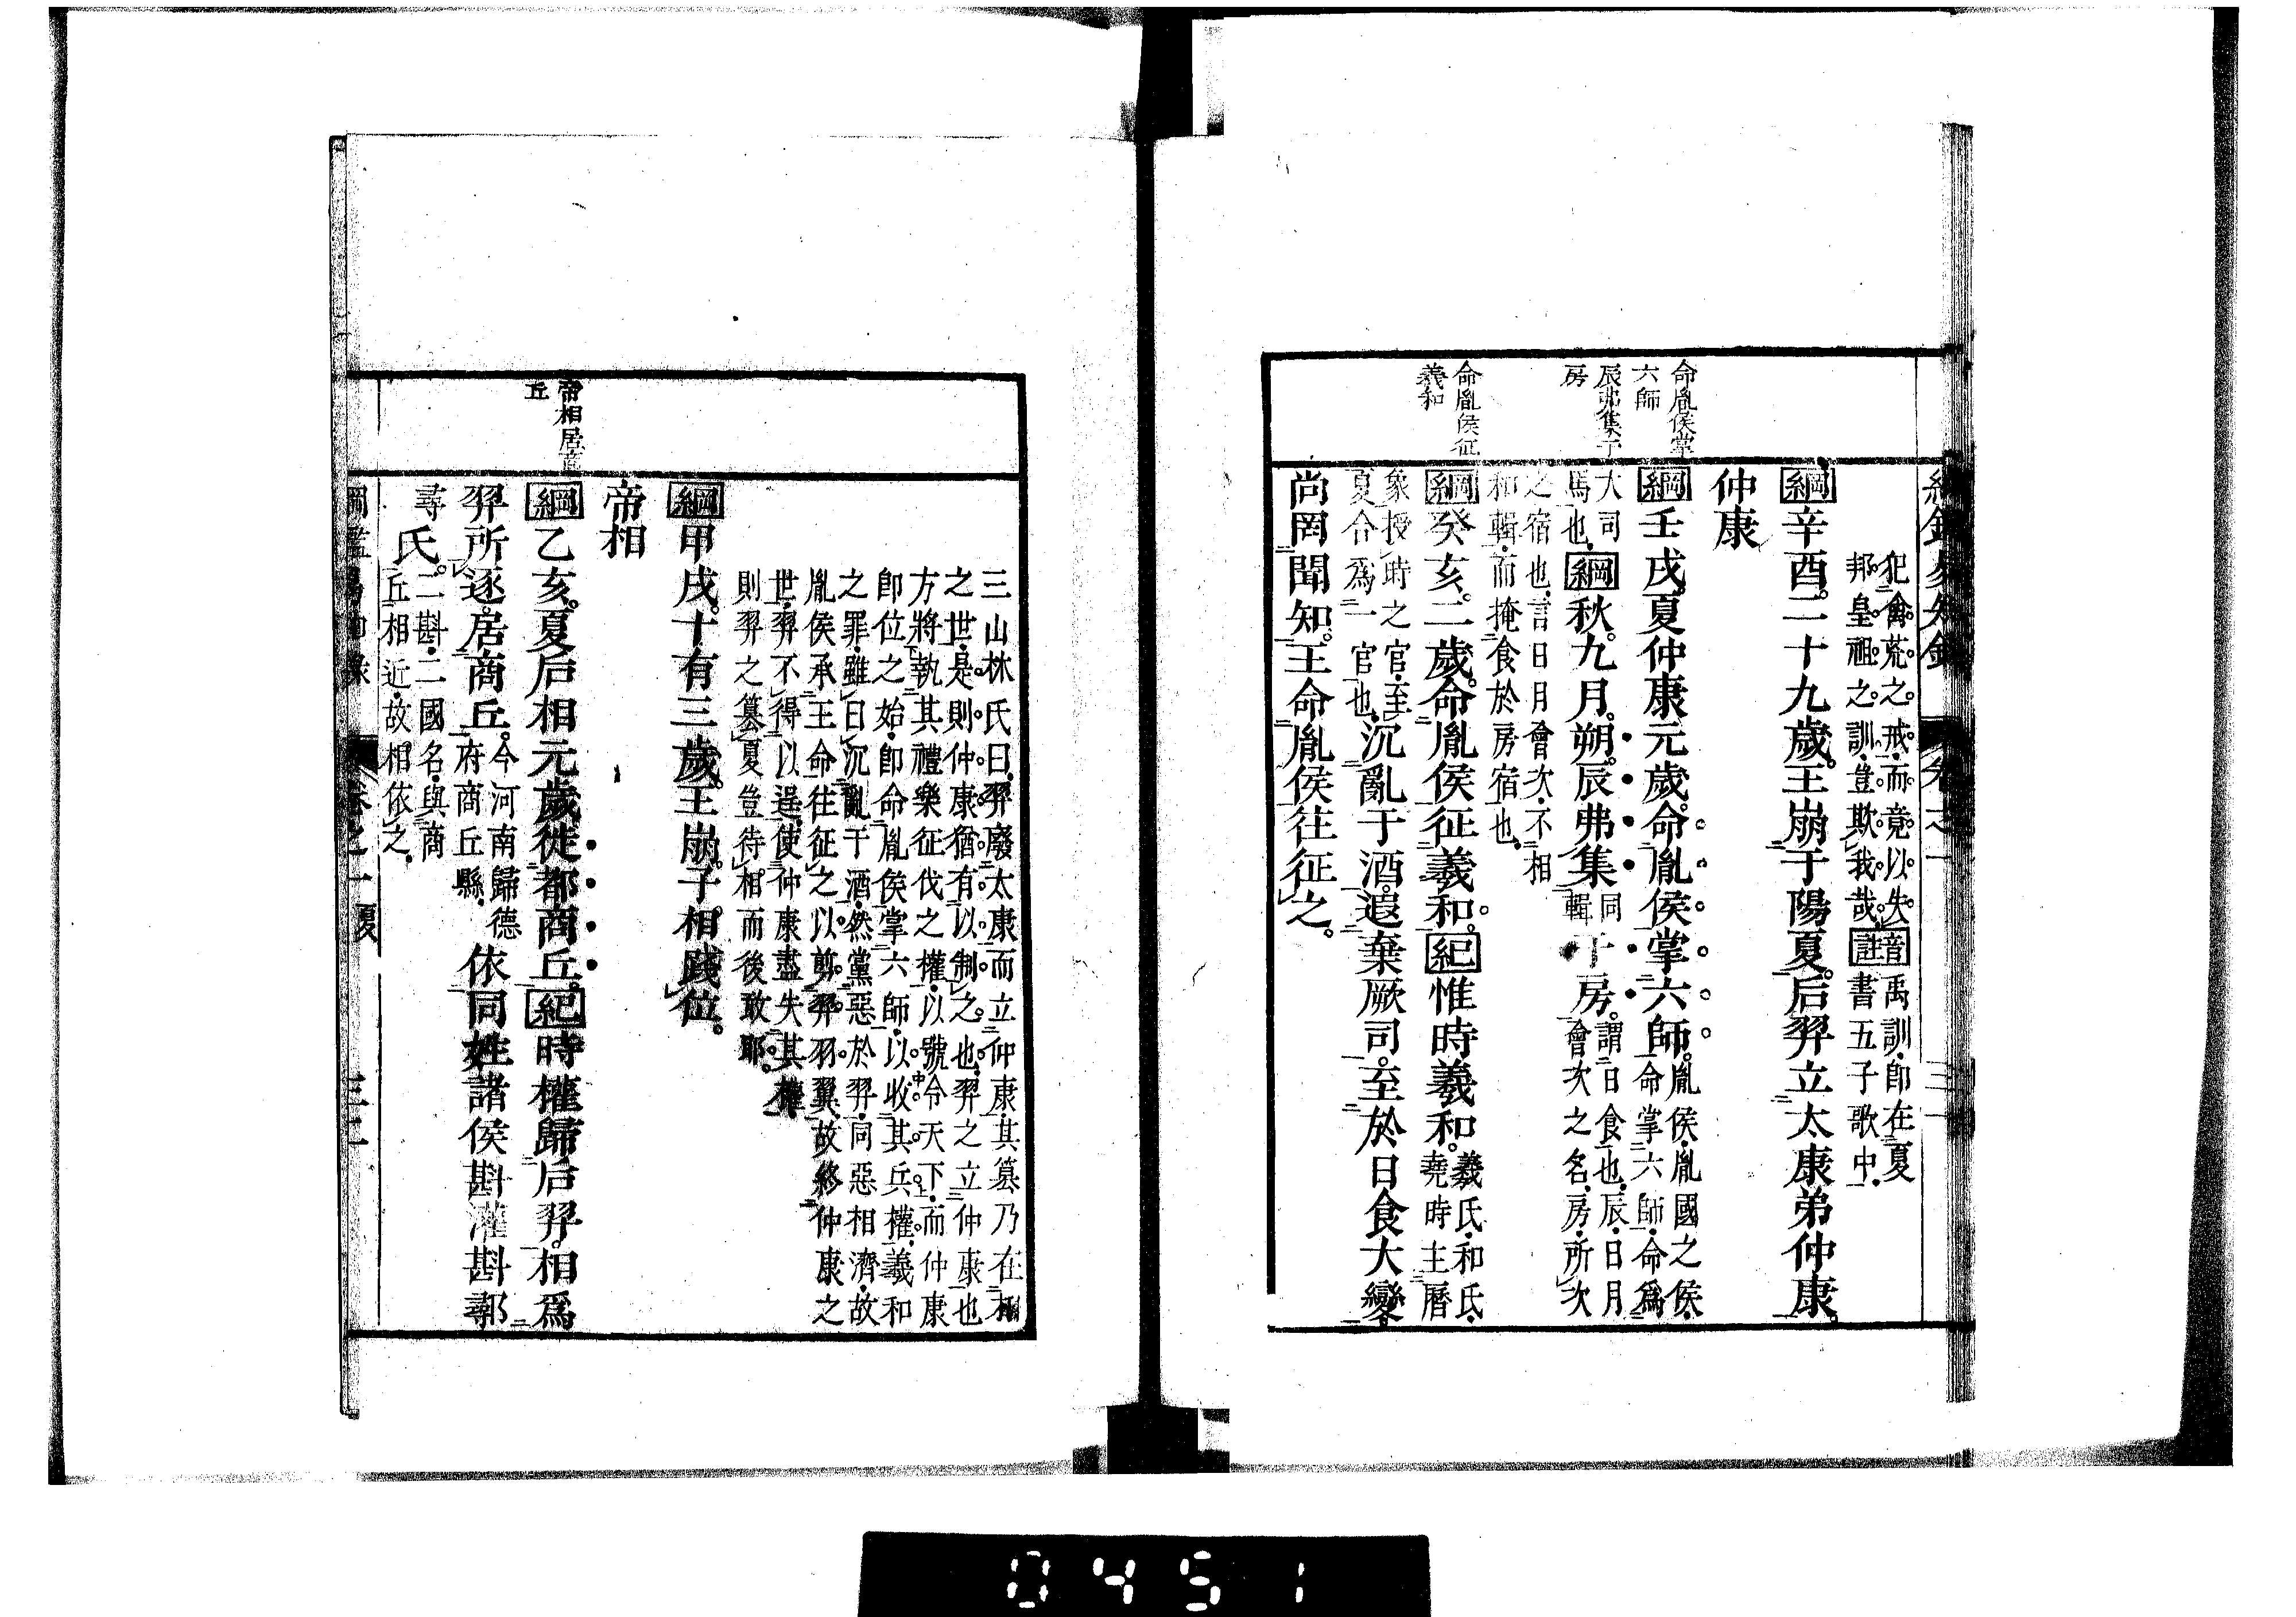 命胤侯掌
六師
辰弗集于
房
命胤侯征
羲和
犯禽荒之戒而竟以失
邦皇祖之訓豈欺我哉
音禹訓即在夏
註書五子歌中
綱辛酉二十九歲王崩于陽夏后羿立太康弟仲康
仲康
綱壬戌夏仲康元歲命胤侯掌六師
胤侯胤國之侯
命掌六師命爲
大司
馬也
綱秋九月朔辰弗集
同
輯
于房
謂日食也辰日月
會次之名房所次
之宿也言日月會次不相
和輯而掩食於房宿也
綱癸亥二歲命胤侯征羲和紀惟時羲和
羲氏和氏
堯時主曆
象授時之官至
夏合爲一官也
沉亂于酒遐棄厥司至於日食大變
尚罔聞知王命胤侯往征之
帝相居商
丘
三山林氏曰羿廢太康而立仲康其篡乃在相
之世是則仲康猶有以制之也羿之立仲康也
方將執其禮樂征伐之權以號令天下而仲康
卽位之始卽命胤侯掌六師以收其兵權羲和
之罪雖曰沉亂于酒然黨惡於羿同惡相濟故
胤侯承王命往征之以剪羿羽翼故終仲康之
世羿不得以逞使仲康盡失其權
則羿之篡夏豈待相而後敢耶
綱甲戌十有三歲王崩子相踐位
帝相
綱乙亥夏后相元歲徙都商丘紀時權歸后羿相爲
羿所逐居商丘
今河南歸德
府商丘縣
依同姓諸侯斟灌斟鄩
尋
氏
二斟二國名與商
丘相近故相依之
綱鑑易知錄 卷之一 夏 三二